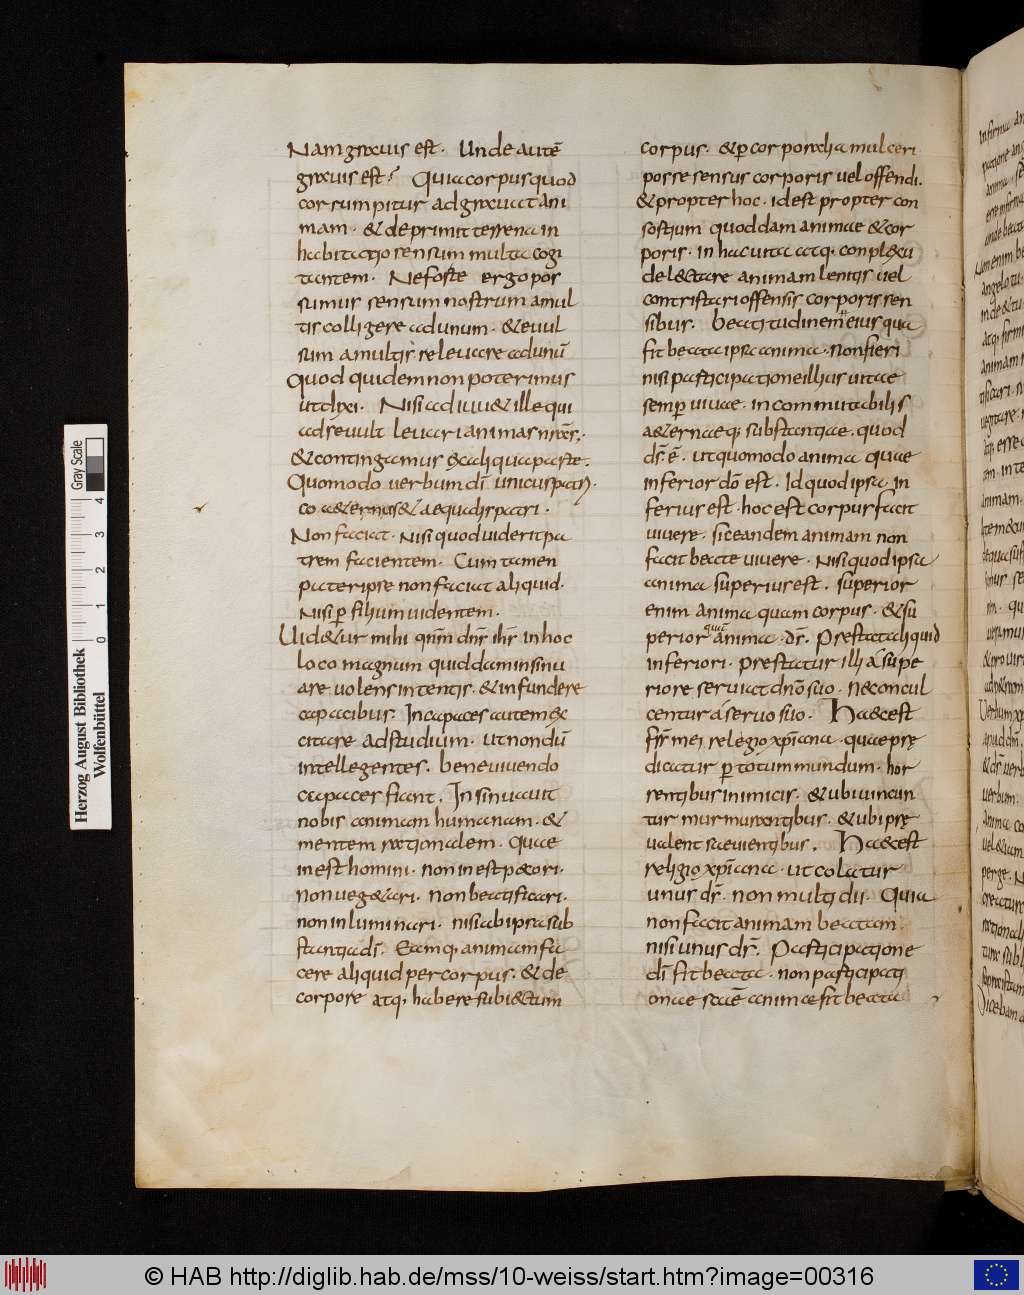 Nam grauis est. Unde autē
grauis est? Quia corpus quod
corrumpitur adgrauat ani
mam. & deprimit terrena in
habitatio sensum multa cogi
tantem. Ne forte ergo pos
simus sensum nostrum a mul
tis colligere ad unum. & euul
sum a multis releuare ad unū
Quod quidem non poterimus
ut dixi. Nisi adiuu& ille qui
ad sē uult leuari animas nr̄as.
& contingamus ex aliqua parte.
Quomodo uerbum dī unicus patris.
co a&ernus & aequalis patri.
Non faciat. Nisi quod uiderit pa
trem facientem. Cum tamen
pater ipse non faciat aliquid.
Nisi per filium uidentem.
Uid&ur mihi qnm̄ dn̄s ih̄s in hoc
loco magnum quiddam insinu
are uolens intentis. & infundere
capacibus. Incapaces autem ex
citare ad studium. ut nondū
intellegentes. bene uiuendo
capaces fiant. Insinuauit
nobis animam humanam. &
mentem rationalem. Quae
inest homini. non inest pecori.
non ueg&ari. non beatificari.
non inluminari. nisi ab ipsa sub
stantia dī. Eamq; animam fa
cere aliquid per corpus. & de
corpore atq; habere subiectum
corpus. & p̱ corporalia mulceri
posse sensus corporis uel offendi.
& propter hoc. id est propter con
sortium quoddam animae & cor
poris. in hac uita atq; conplexu
delectare animam lenitis uel
contristari offensis corporis sen
sibus. Beatitudinem ei eius qua
fit beata ipsa anima. non fieri
nisi participatione illius uitae
semp̱ uiuae. incommutabilis
a&ernaeq; substantiae. quod
ds̄ ē. ut quomodo anima quae
inferior dō est. Id quod ipsa in
ferius est. hoc est corpus facit
uiuere. sic eandem animam non
facit beate uiuere. Nisi quod ipsa
anima superius est. superior
enim anima quam corpus. & su
perior quā anima. ds̄. Prestat aliquid
inferiori. prestatur illi a supe
riore seruiat dnō suo. ne concul
centur a seruo suo. Haec est
frs̄ mei religio xp̄iana. quae prę
dicatur p̱ totum mundum. hor
rentibus inimicis. & ubi uincun
tur murmurantibus. & ubi prę
ualent saeuientibus. Haec est
religio xp̄iana. ut colatur
unus ds̄. non multi dii. Quia
non facit animam beatam.
nisi unus ds̄. Participatione
dī fit beata. non participati
onae sc̄ae animae fit beata
Herzog August Bibliothek
Wolfenbüttel
Gray Scale
0 1 2 3 4
© HAB http://diglib.hab.de/mss/10-weiss/start.htm?image=00316